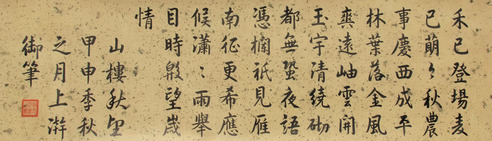 禾已登場麦
已萠三秋農
事慶西成平
林葉落金風
爽遠岫雲開
玉宇清繞砌
都無蛩夜語
憑欄祇見雁
南征更希應
候瀟〻雨舉
目時殷望歲
情
山樓秋望
甲申季秋
之月上澣
御筆